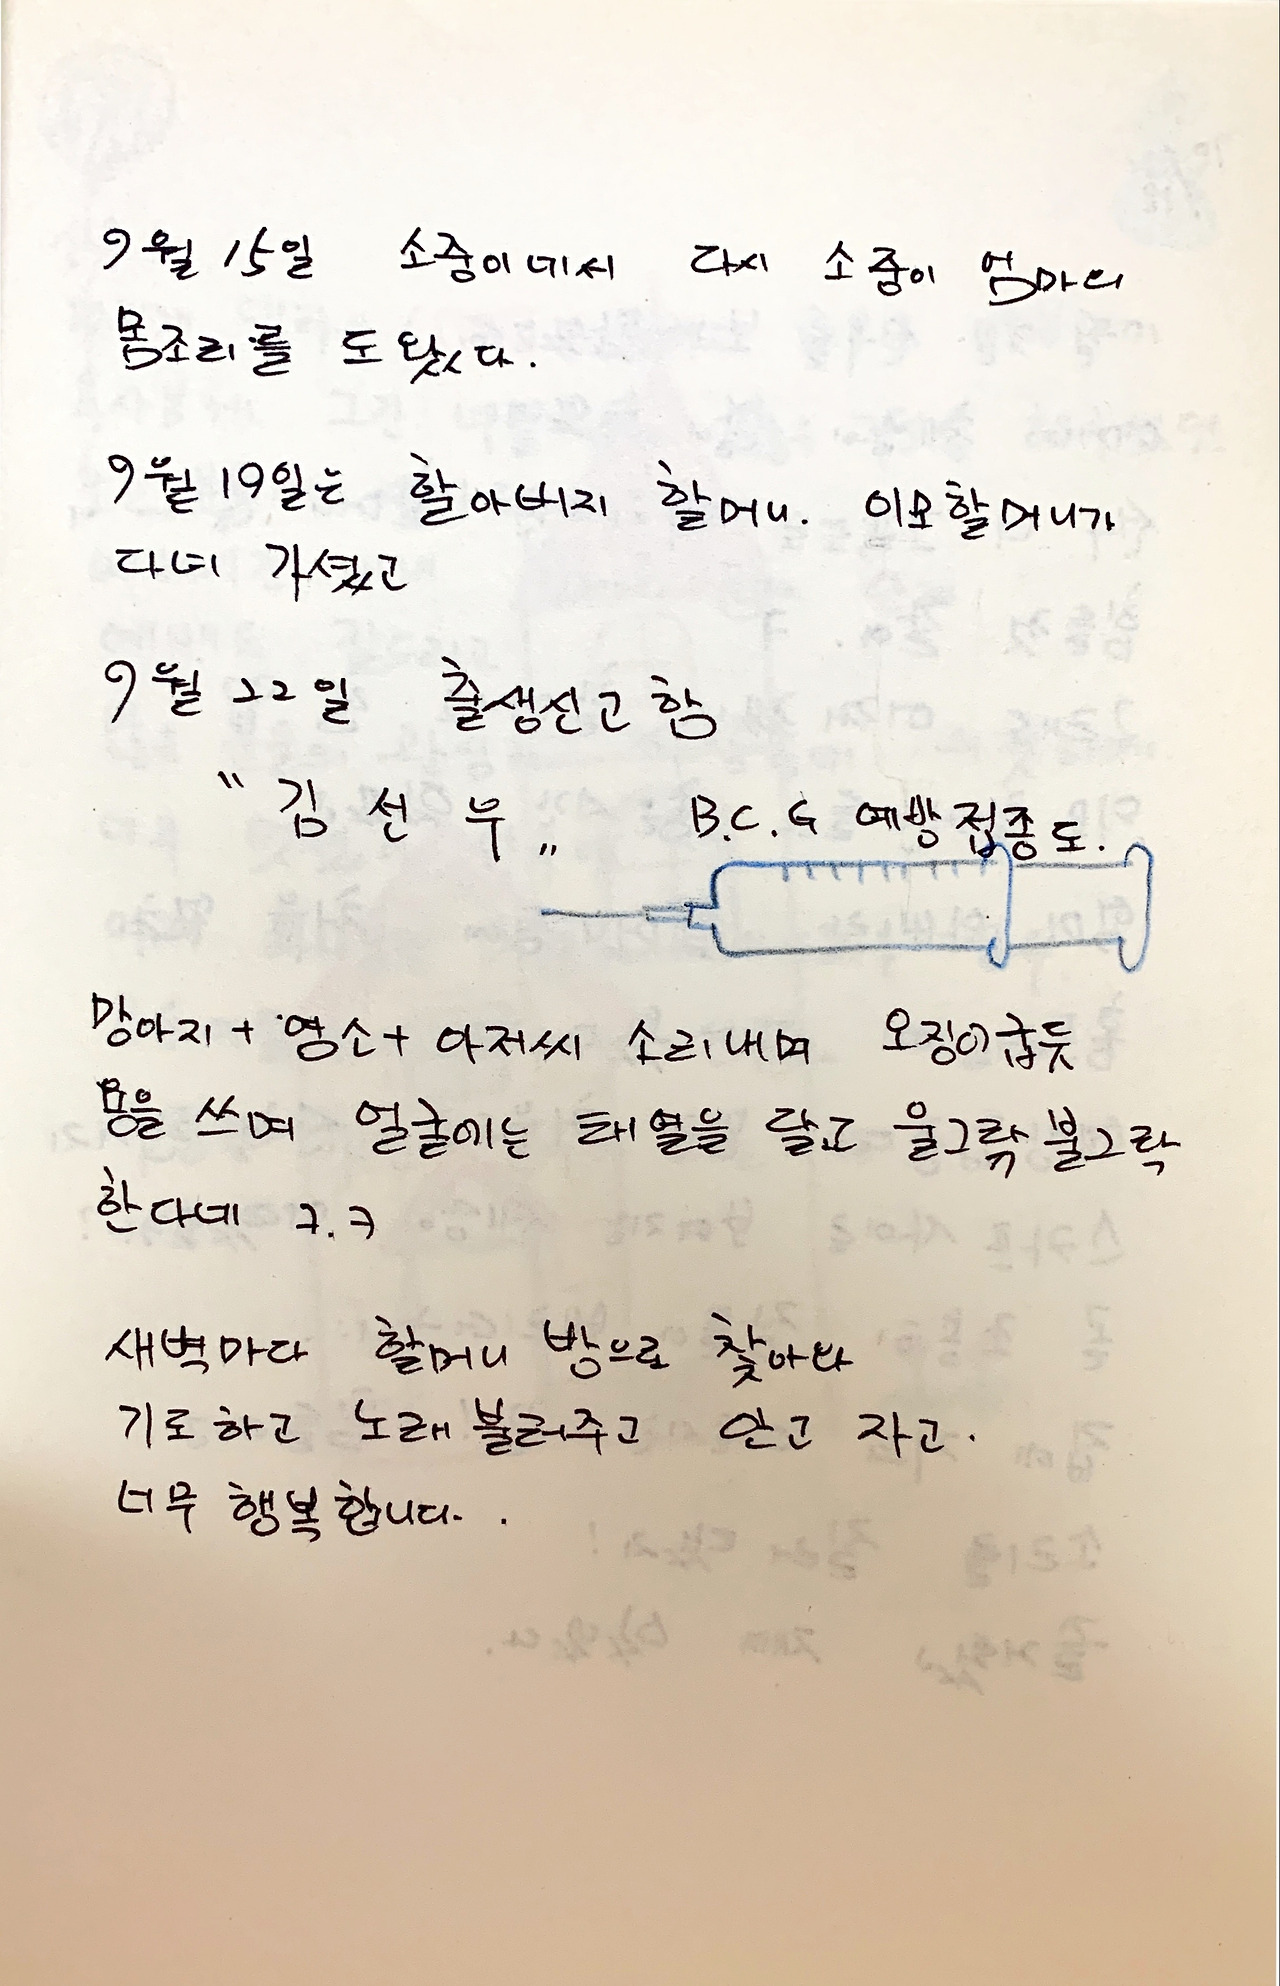 9월 15일 소중이네서 다시 소중이 엄마의
몸조리를 도왔다.
9월 19일는 할아버지 할머니. 이모할머니가
다녀 가셨고
9월 22일 출생신고함
"김선우" B.C.G 예방접종도.
망아지 + 염소 + 아저씨 소리내며 오징어굽듯
몸을 쓰며 얼굴에는 태열을 달고 울그락 불그락
한다네 ㅋ.ㅋ
새벽마다 할머니 방으로 찾아와
기로하고 노래불러주고 안고 자고.
너무 행복합니다..